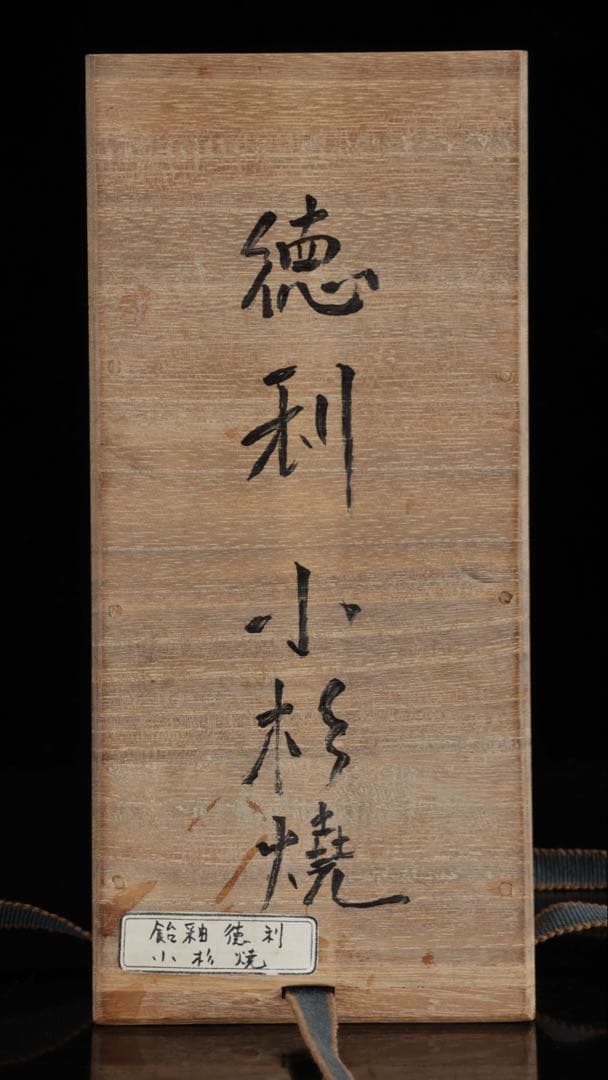 徳利 小杉燒
飴釉徳利
小杉焼